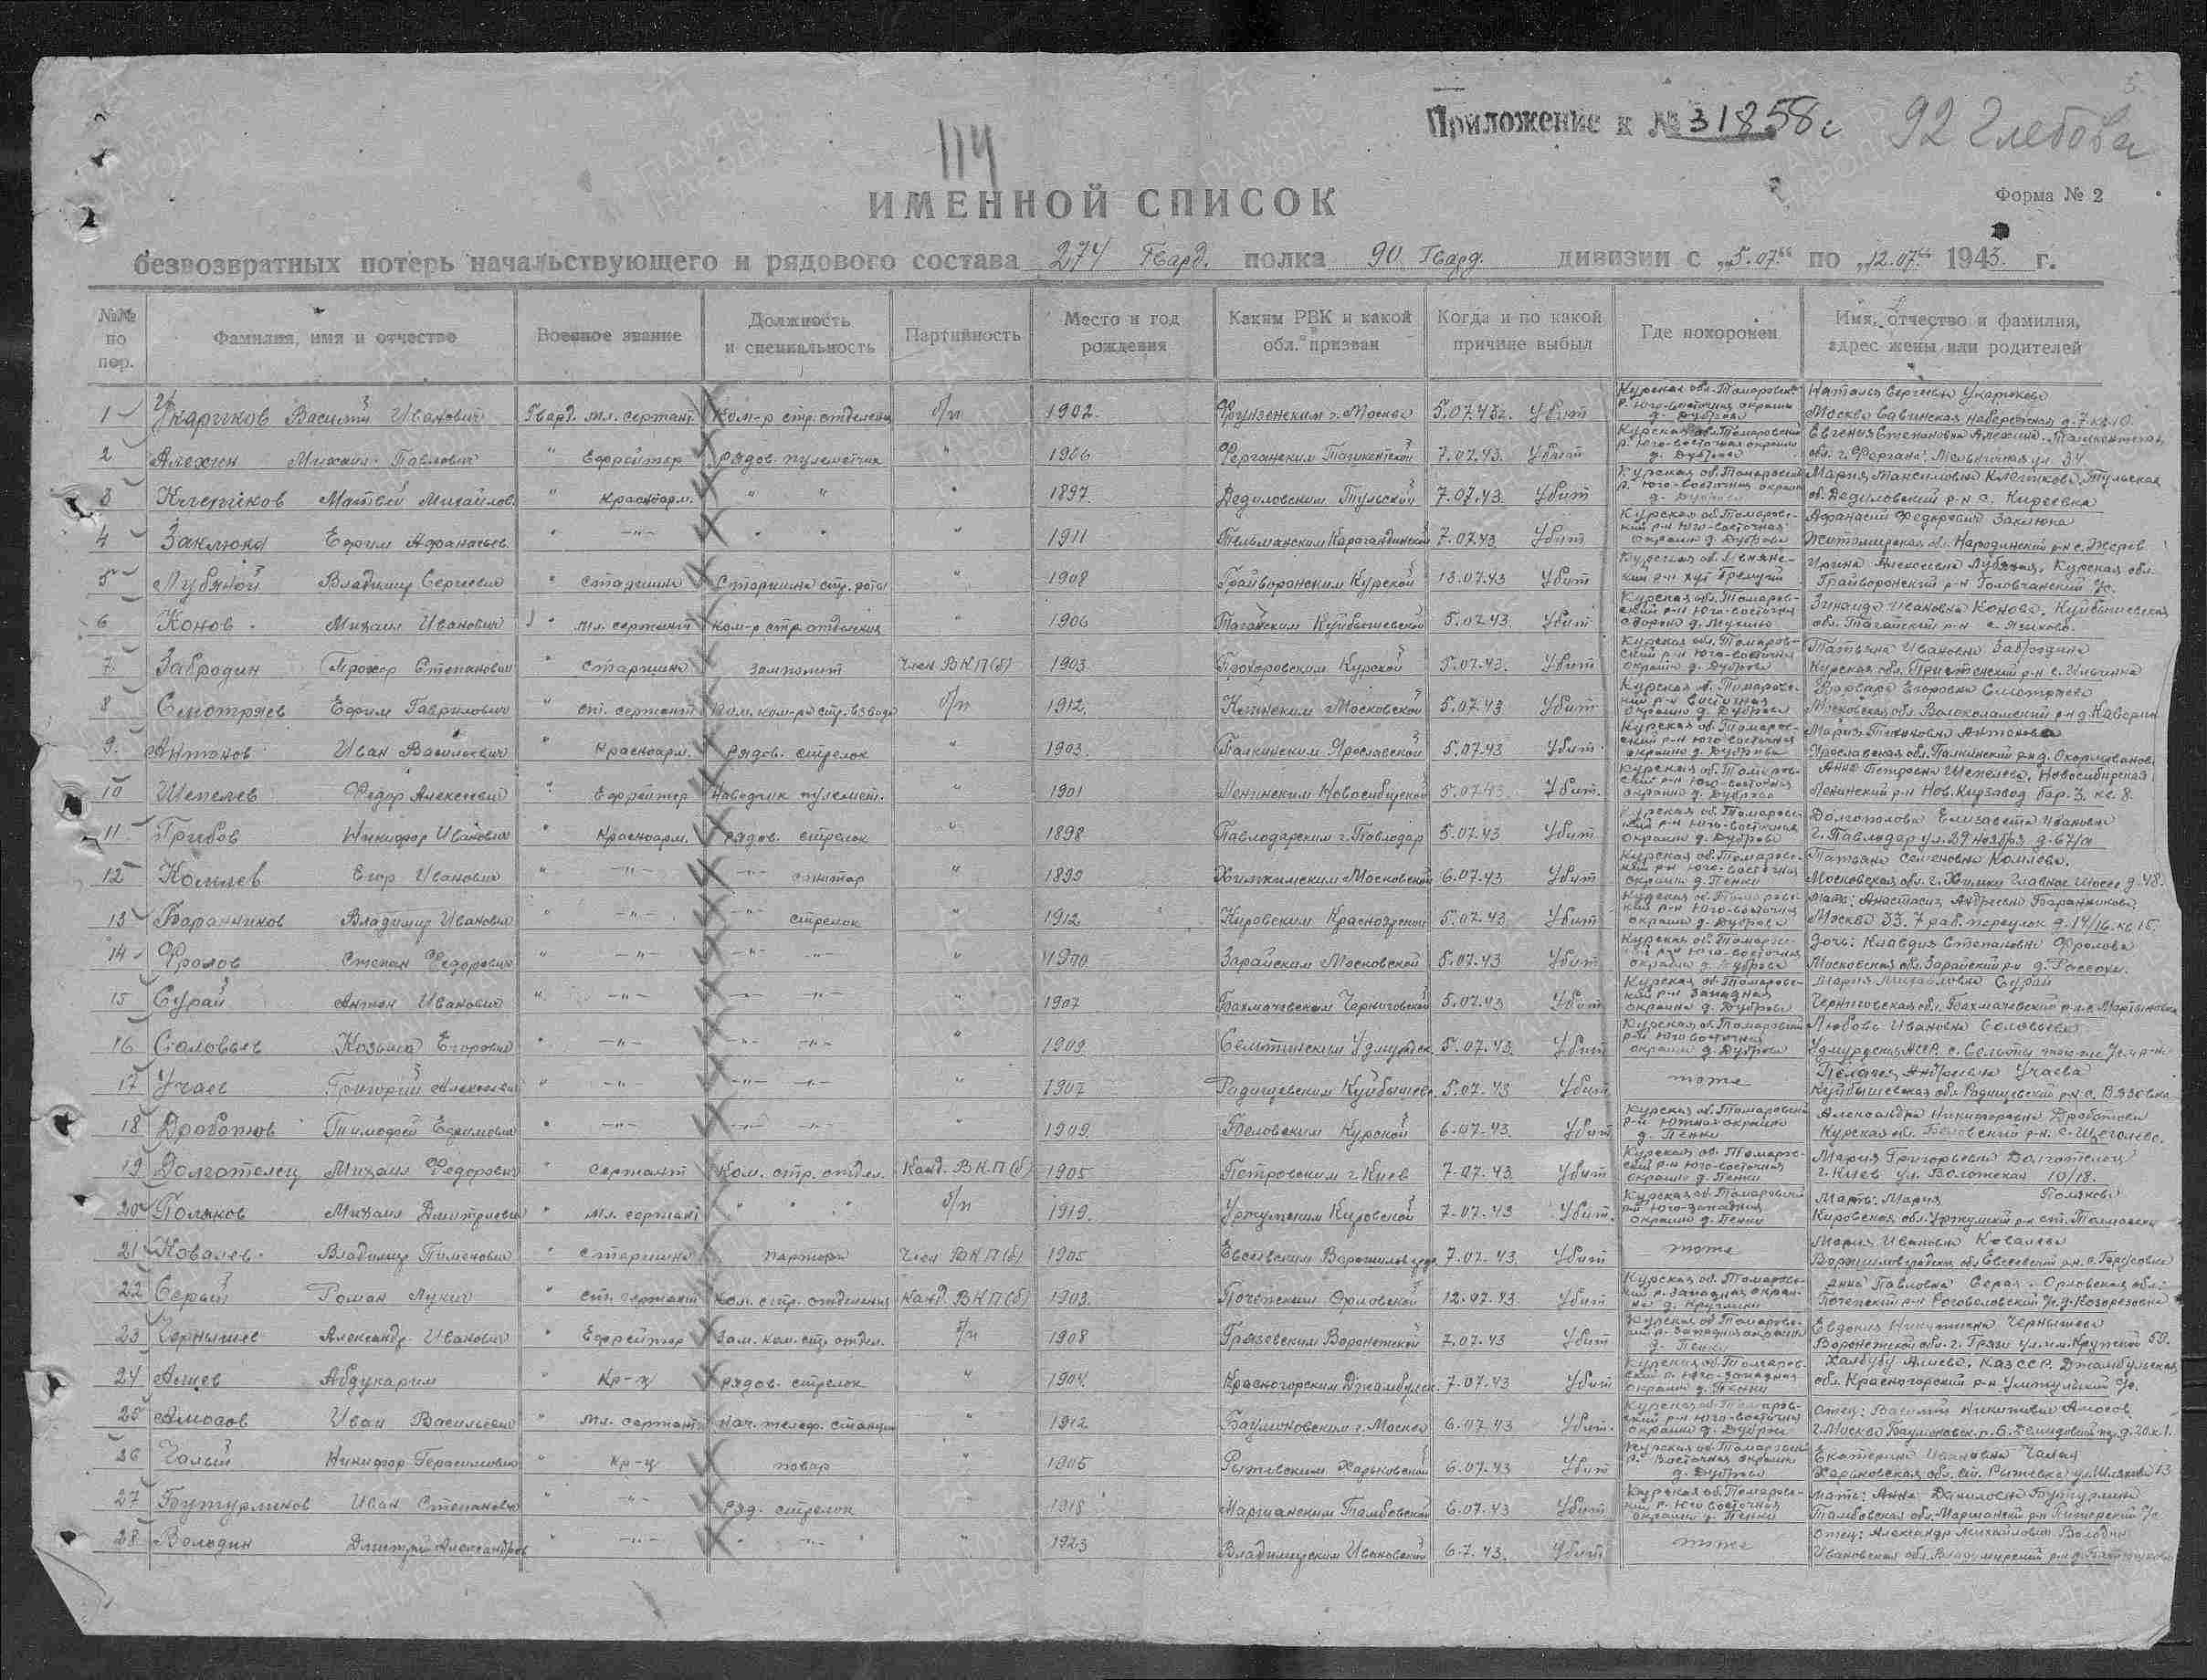 Приложение к № 31858с
92 Глебова
114
ИМЕННОЙ СПИСОК
Форма № 2
безвозвратных потерь начальствующего и рядового состава 274 Гвард. полка 90 Гвард. дивизии с „5.07“ по „12.07“ 1943 г.
№№ по пор. Фамилия, имя и отчество Военное звание Должность и специальность Партийность Место и год рождения Каким РВК и какой обл. призван Когда и по какой причине выбыл Где похоронен Имя, отчество и фамилия, адрес жены или родителей
1 Укариков Василий Иванович Гвард. мл. сержант Ком-р стр. отделения б/п 1902 Фрунзенским г. Москва 5.07.43г. Убит Курская обл. Томаровск. р. Юго-восточная окраина д. Дуброва Москва Саввинская набережная д. 7 кв 10
2 Алехин Михаил Павлович " Ефрейтор рядов. пулеметчик " 1906 Ферганским Ташкентской 7.07.43 Убит Курская обл. Томаровский р. Юго-восточная окраина д. Дуброва Евгения Степановна Алехина, Ташкентская обл. г. Фергана, Мельничная ул 34
3 Клепиков Матвей Михайлов. " Красноарм. " " " 1897 Дедиловским Тульской 7.07.43 Убит Курская об. Томаровский р. Юго-восточная окраина д. Дуброва Мария Максимовна Клепикова, Тульская об. Дедиловский р-н с. Киреевка
4 Заклюка Ефим Афанасьев. " -"- " " " 1911 Тельманским Карагандинской 7.07.43 Убит Курская об. Томаровский р-н Юго-восточная окраина д. Дуброва Афанасий Федорович Заклюка Житомирская обл. Народический р-н с. Жерев
5 Лубяной Владимир Сергеевич " Старшина Старшина стр. роты " 1908 Грайворонским Курской 13.07.43 Убит Курская об. кий р-н хут Гремучий Ирина Алексеевна Лубяная, Курская обл. Грайворонский р-н Головчанский с/с.
6 Конов Михаил Иванович " мл. сержант ком-р стр. отделения " 1906 Тагайским Куйбышевской 5.07.43 Убит Курская обл. Томаровский р-н Юго-восточная сторона д. Зинаида Ивановна Конова, Куйбышевская обл. Тагайский р-н
7 Забродин Прохор Степанович " Старшина замполит Член ВКП(б) 1903 Прохоровским Курской 5.07.43 Убит Курская обл. Томаровский р-н Юго-восточная окраина д. Дуброва Татьяна Ивановна Забродина Курская обл. Пристенский р-н с. Ильинка
8 Смотряев Ефим Гаврилович " ст. сержант Пом. ком-ра стр. взвода б/п 1912 Клинским Московской 5.07.43 Убит Курская об. р-н восточная окраина д. Дуброва Варвара Егоровна Смотряева Московская обл. Волоколамский р-н
9 Антонов Иван Васильевич " Красноарм. рядов. стрелок " 1903 Палкинским Ярославской 5.07.43 Убит Курская об. Томаровский р-н Юго-восточная окраина д. Дуброва Мария Тихоновна Антонова Ярославская обл. Палкинский р-н д.
10 Шепелев Федор Алексеевич " Ефрейтор Наводчик пулемет. " 1901 Ленинским Новосибирской 5.07.43 Убит. Курская об. Томаровский р-н Юго-восточная окраина д. Дуброва Анна Петровна Шепелева, Новосибирская Ленинский р-н Нов. Кирзавод бар. 3. кв. 8.
11 Грибов Никифор Иванович " Красноарм. рядов. стрелок " 1898 Павлодарским г. Павлодар 5.07.43 Убит Курская об. Томаровский р-н Юго-восточная окраина д. Дуброва Долгополова Елизавета Ивановна г. Павлодар ул. 29 Ноября д-67/а
12 Егор Иванович " -"- -"- санитар " 1899 Химкинским Московской 6.07.43 Убит Курская об. Томаровский р-н Юго-восточная окраина д. Пенки Татьяна Семеновна Московская обл. г. Химки Главное Шоссе д-48.
13 Баранников Владимир Иванович " -"- -"- стрелок " 1912 Кировским 5.07.43 Убит Курская об. Томаровский р-н Юго-восточная окраина д. Дуброва Мать: Анастасия Андреевна Баранникова Москва 33. 7 раб. переулок д. 14/16. кв 15.
14 Фролов Степан Федорович " -"- -"- -"- " 1900 Зарайским Московской 5.07.43 Убит Курская об. р-н Юго-восточная окраина д. Дуброва Дочь: Клавдия Степановна Фролова Московская обл. Зарайский р-н д. Рассохи.
15 Сурай Антон Иванович " -"- -"- -"- " 1907 Бахмачевским Черниговской 5.07.43 Убит Курская об. Томаровский р-н Западная окраина д. Дуброва Мария Михайловна Сурай Черниговская обл. Бахмачевский р-н с. Мартыновка
16 Соловьев Козьма Егорович " -"- -"- -"- " 1909 Селтинским Удмуртск. 5.07.43 Убит Курская об. Томаровский р-н Юго восточная окраина д. Дуброва Любовь Ивановна Соловьева Удмурдская АССР. с. Селты
17 Учаев Григорий Алексеевич " -"- -"- -"- " 1907 Радищевским Куйбышевс. 5.07.43 Убит тоже Пелагея Андреевна Учаева Куйбышевская обл Радищевский р-н с. Вязовка
18 Дроботов Тимофей Ефимович " -"- -"- -"- " 1909 Беловским Курской 6-07-43. Убит Курская об. Томаровский р-н Южная окраина д. Пенки Александра Никифоровна Дроботова Курская обл. Беловский р-н. с. Щеголево.
19 Долготелец Михаил Федорович " Сержант Ком. стр. отдел. Канд. ВКП(б) 1905 Петровским г. Киев 7-07-43 Убит Курская об. Томаровский р-н Юго-восточная окраина д. Пенки Мария Григорьевна Долготелец г. Киев ул. Волошская 10/18.
20 Поляков Михаил Дмитриевич " мл. сержант " " " б/п 1919. Уржумским Кировской 7-07-43 Убит. Курская об. Томаровский р-н Юго-западная окраина д. Пенки Мать: Мария Полякова Кировская обл. Уржумский р-н
21 Ковалев Владимир Пименович " Старшина парторг Член ВКП(б) 1905 Евсеевским Ворошиловград 7.07.43. Убит тоже Мария Ивановна Ковалева Ворошиловградская обл Евсеевский р-н.
22 Серый Роман Лукич " ст. сержант Ком. стр. отделения Канд. ВКП(б) 1903. Почепским Орловской 12.07.43 Убит Курская об. р. Западная окраина д. Кругляки Анна Павловна Серая. Орловская обл. Почепский р-н
23 Чернышев Александр Иванович " Ефрейтор Зам. ком. стр. отдел. б/п 1908 Грязевским Воронежской 7.07.43 Убит Курская об Томаровский р-н Западная окраина д. Пенки Евдокия Никитична Чернышева Воронежской обл. г. Грязи
24 Алиев Абдукарим " Кр-ц рядов. стрелок " 1904. Красногорским Джамбулск. 7.07.43 Убит Курская об. Томаровский р. Юго-западная окраина д. Пенки Алиева. Каз ССР. Джамбульская обл. Красногорский р-н
25 Амосов Иван Васильевич " Мл. сержант Нач. телеф. станции " 1912 Бауманским г. Москва 6.07.43 Убит. Курская об. Томаровский р-н Юго-восточная окраина д. Дуброва Отец: Василий Никитович Амосов г. Москва
26 Чалый Никифор Герасимович " Кр-ц повар " 1905 Харьковской 6.07.43 Убит Курская об. Томаровский р. Восточная окраина д. Дуброва Екатерина Ивановна Чалая Харьковская обл.
27 Бутурлинов Иван Степанович " -"- ряд. стрелок " 1918 Моршанским Тамбовской 6.07.43 Убит Курская об. Томаровский р. Юго восточная окраина д. Пенки мать: Анна Даниловна Тамбовская обл. Моршанский р-н
28 Володин Дмитрий Александров " -"- " -"- " 1923 Владимирским Ивановской 6.7.43. Убит тоже отец: Александр Михайлович Володин Ивановская обл. Владимирский р-н